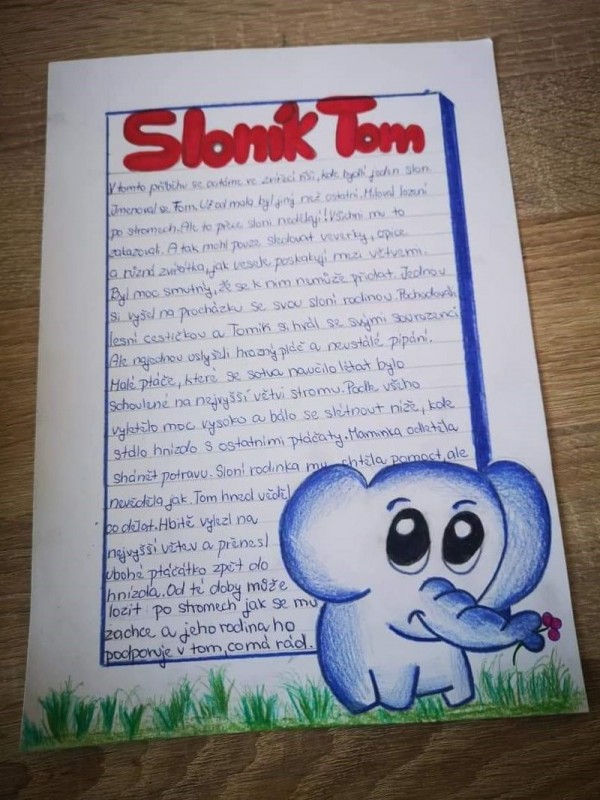 Sloník Tom
V tomto příběhu se ocitáme ve zvířecí říši, kde bydlí jeden slon.
Jmenoval se Tom. Už od mala byl jiný než ostatní. Miloval lození
po stromech. Ale to přece sloni nedělají! Všichni mu to
zakazovali. A tak mohl pouze sledovat veverky, opice
a různá zvířátka, jak vesele poskakují mezi větvemi.
Byl moc smutný, že se k nim numůže přidat. Jednou
si vyšel na procházku se svou sloní rodinou. Pochodovali
lesní cestičkou a Tomík si hrál se svými sourozenci
Ale najednou uslyšeli hrozný pláč a neustálé pípání.
Malé ptáče, které se sotva naučilo létat bylo
schoulené na nejvyšší větvi stromu. Podle všeho
vyletělo moc vysoko a bálo se slétnout níže, kde
stálo hnízdo s ostatními ptáčaty. Maminka odletěla
shánět potravu. Sloní rodinka mu chtěla pomoct, ale
nevěděla jak. Tom hned věděl
co dělat. Hbitě vylezl na
nejvyšší větev a přenesl
ubohé ptáčátko zpět do
hnízda. Od té doby může
lozit po stromech jak se mu
zachce a jeho rodina ho
podporuje v tom, co má rád.